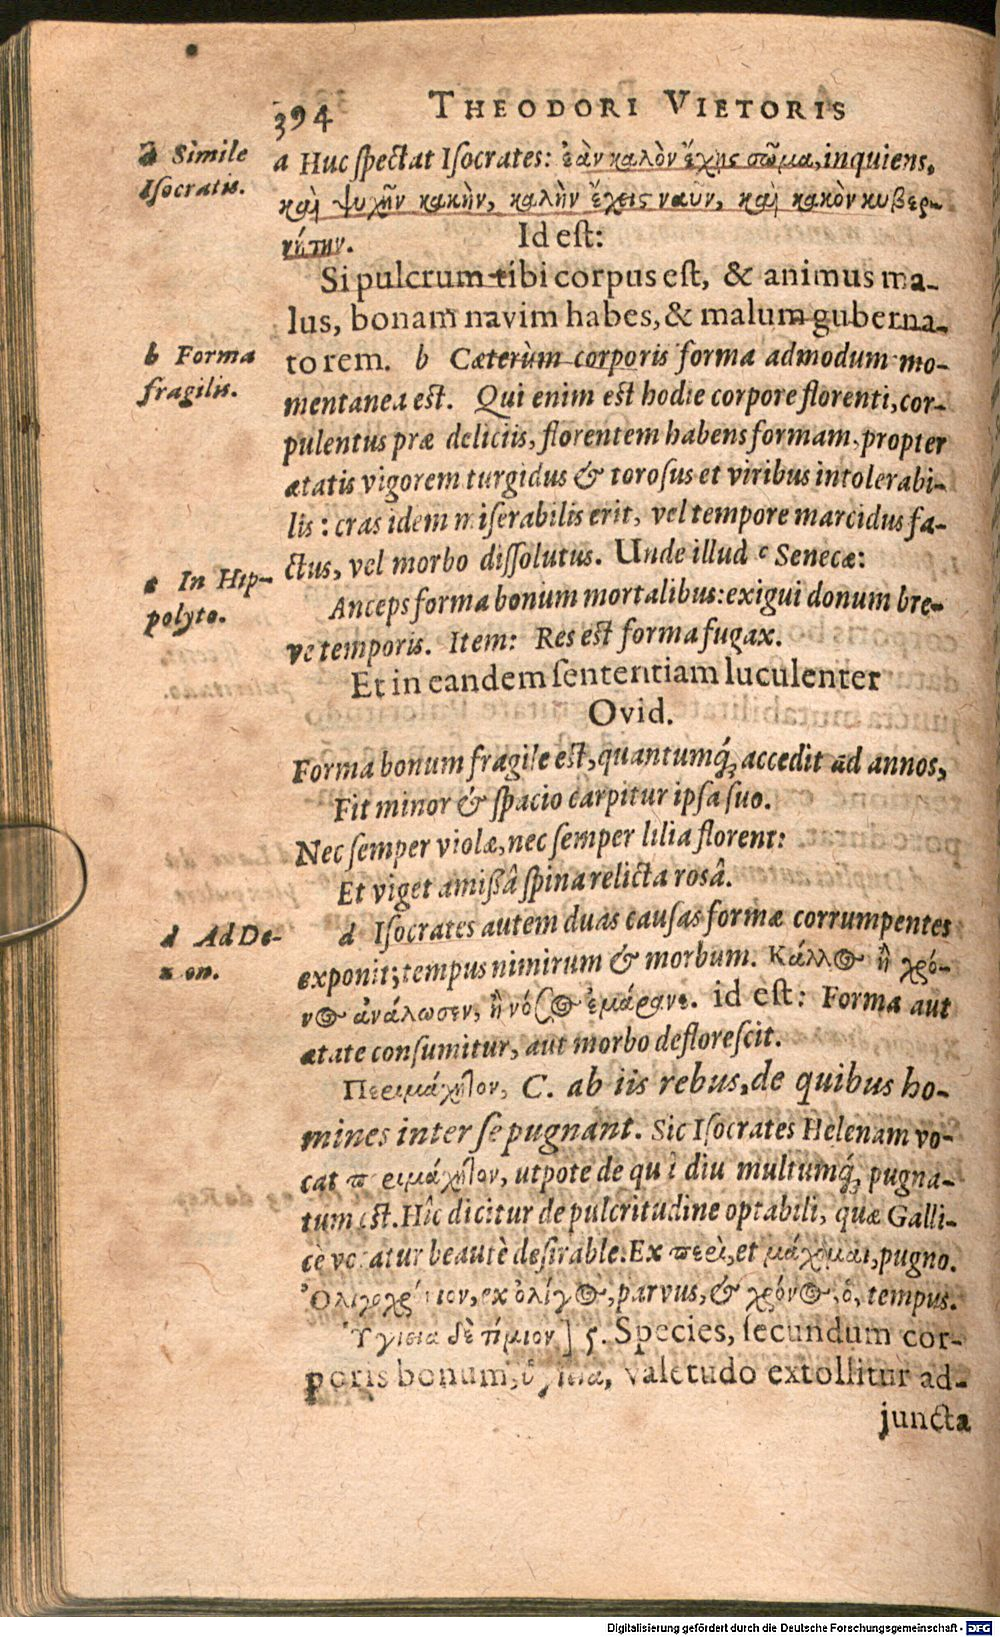 394 THEODORI VIETORIS
a Simile
Isocratis.
a Huc spectat Isocrates: ἐὰν καλὸν ἔχῃς σῶμα, inquiens,
καὶ ψυχὴν κακὴν, καλὴν ἔχεις ναῦν, καὶ κακὸν κυβερ-
νήτην. Id est:
Si pulcrum tibi corpus est, & animus ma-
lus, bonam navim habes, & malum guberna-
torem. b Cæterùm corporis forma admodum mo-
b Forma
fragilis.
mentanea est. Qui enim est hodie corpore florenti, cor-
pulentus præ deliciis, florentem habens formam, propter
ætatis vigorem turgidus & torosus et viribus intolerabi-
lis: cras idem miserabilis erit, vel tempore marcidus fa-
ctus, vel morbo dissolutus. Unde illud c Senecæ:
c In Hip-
polyto.
Anceps forma bonum mortalibus: exigui donum bre-
ve temporis. Item: Res est forma fugax.
Et in eandem sententiam luculenter
Ovid.
Forma bonum fragile est, quantumq́; accedit ad annos,
Fit minor & spacio carpitur ipsa suo.
Nec semper violæ, nec semper lilia florent:
Et viget amissâ spina relicta rosâ.
d Ad De-
on.
d Isocrates autem duas causas formæ corrumpentes
exponit; tempus nimirum & morbum. Κάλλος ἢ χρό-
νος ἀνάλωσεν, ἢ νόσος ἐμάρανε. id est: Forma aut
ætate consumitur, aut morbo deflorescit.
Περιμάχητον, C. ab iis rebus, de quibus ho-
mines inter se pugnant. Sic Isocrates Helenam vo-
cat περιμάχητον, utpote de qu diu multumq́; pugna-
tum est. Hîc dicitur de pulcritudine optabili, quæ Galli-
cè vocatur beautè desirable. Ex περὶ, et μάχομαι, pugno.
Ὀλιγοχρόνιον, ex ὀλίγος, parvus, & χρόνος, ὁ, tempus.
Ὑγιεια δὲ τίμιον] 5. Species, secundum cor-
poris bonum, ὑγιεια, valetudo extollitur ad-
juncta
Digitalisierung gefördert durch die Deutsche Forschungsgemeinschaft - DFG